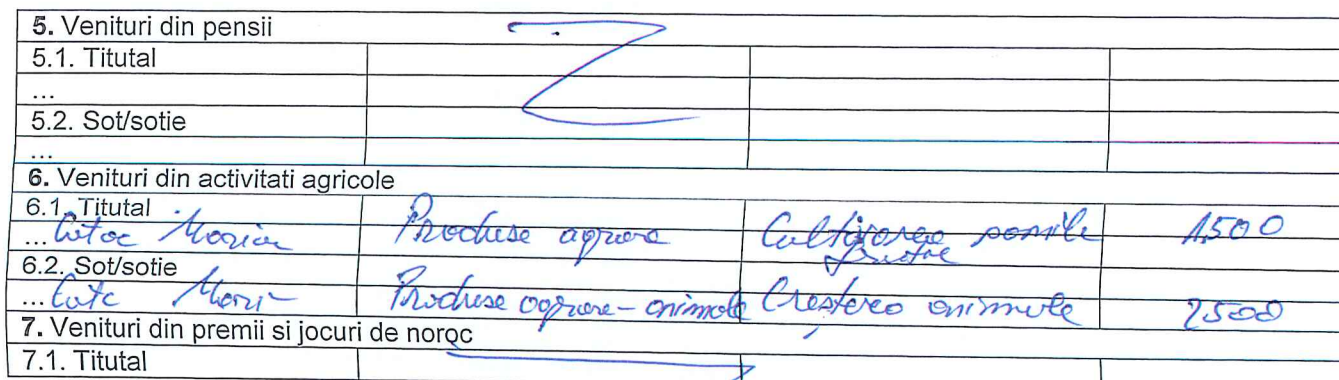 5. Venituri din pensii
5.1. Titutal
...
5.2. Sot/sotie
...
6. Venituri din activitati agricole
6.1. Titutal
... Produse agrare Cultivarea pomilor 1500
fructe
6.2. Sot/sotie
... Produse agrare-animale Creșterea animale 2500
7. Venituri din premii si jocuri de noroc
7.1. Titutal